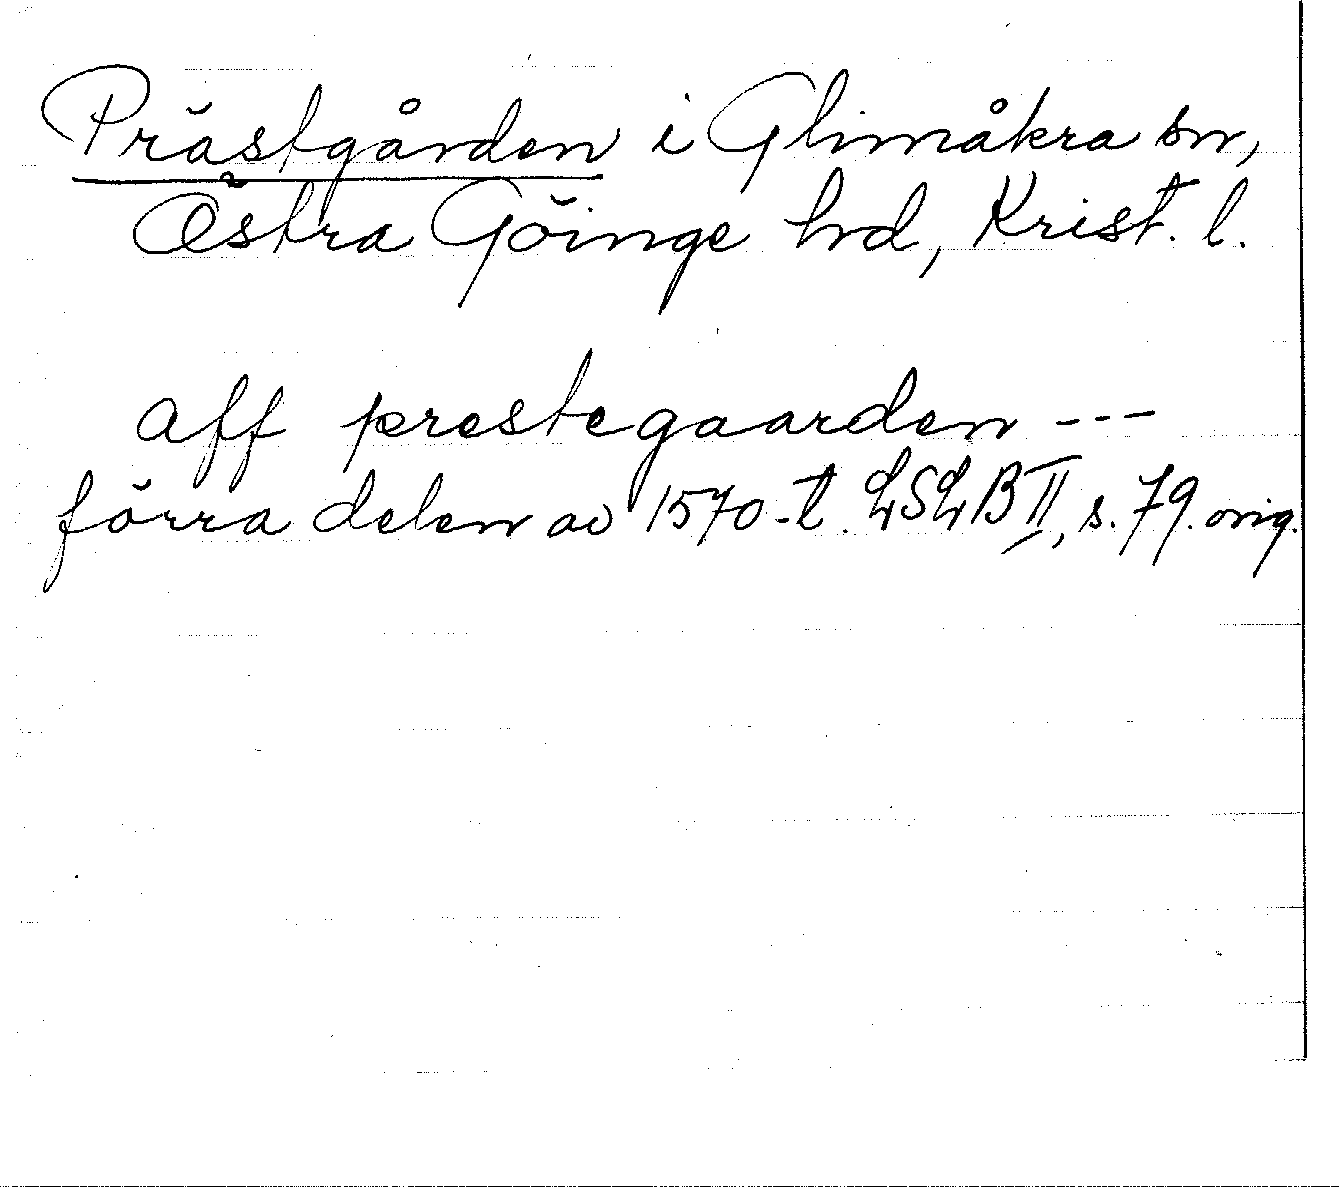 Prästgården i Glimåkra sn,
Östra Göinge hd, Krist. l.
aff prestegaarden ---
förra delen av 1570-t. LSLB II, s. 79. orig.